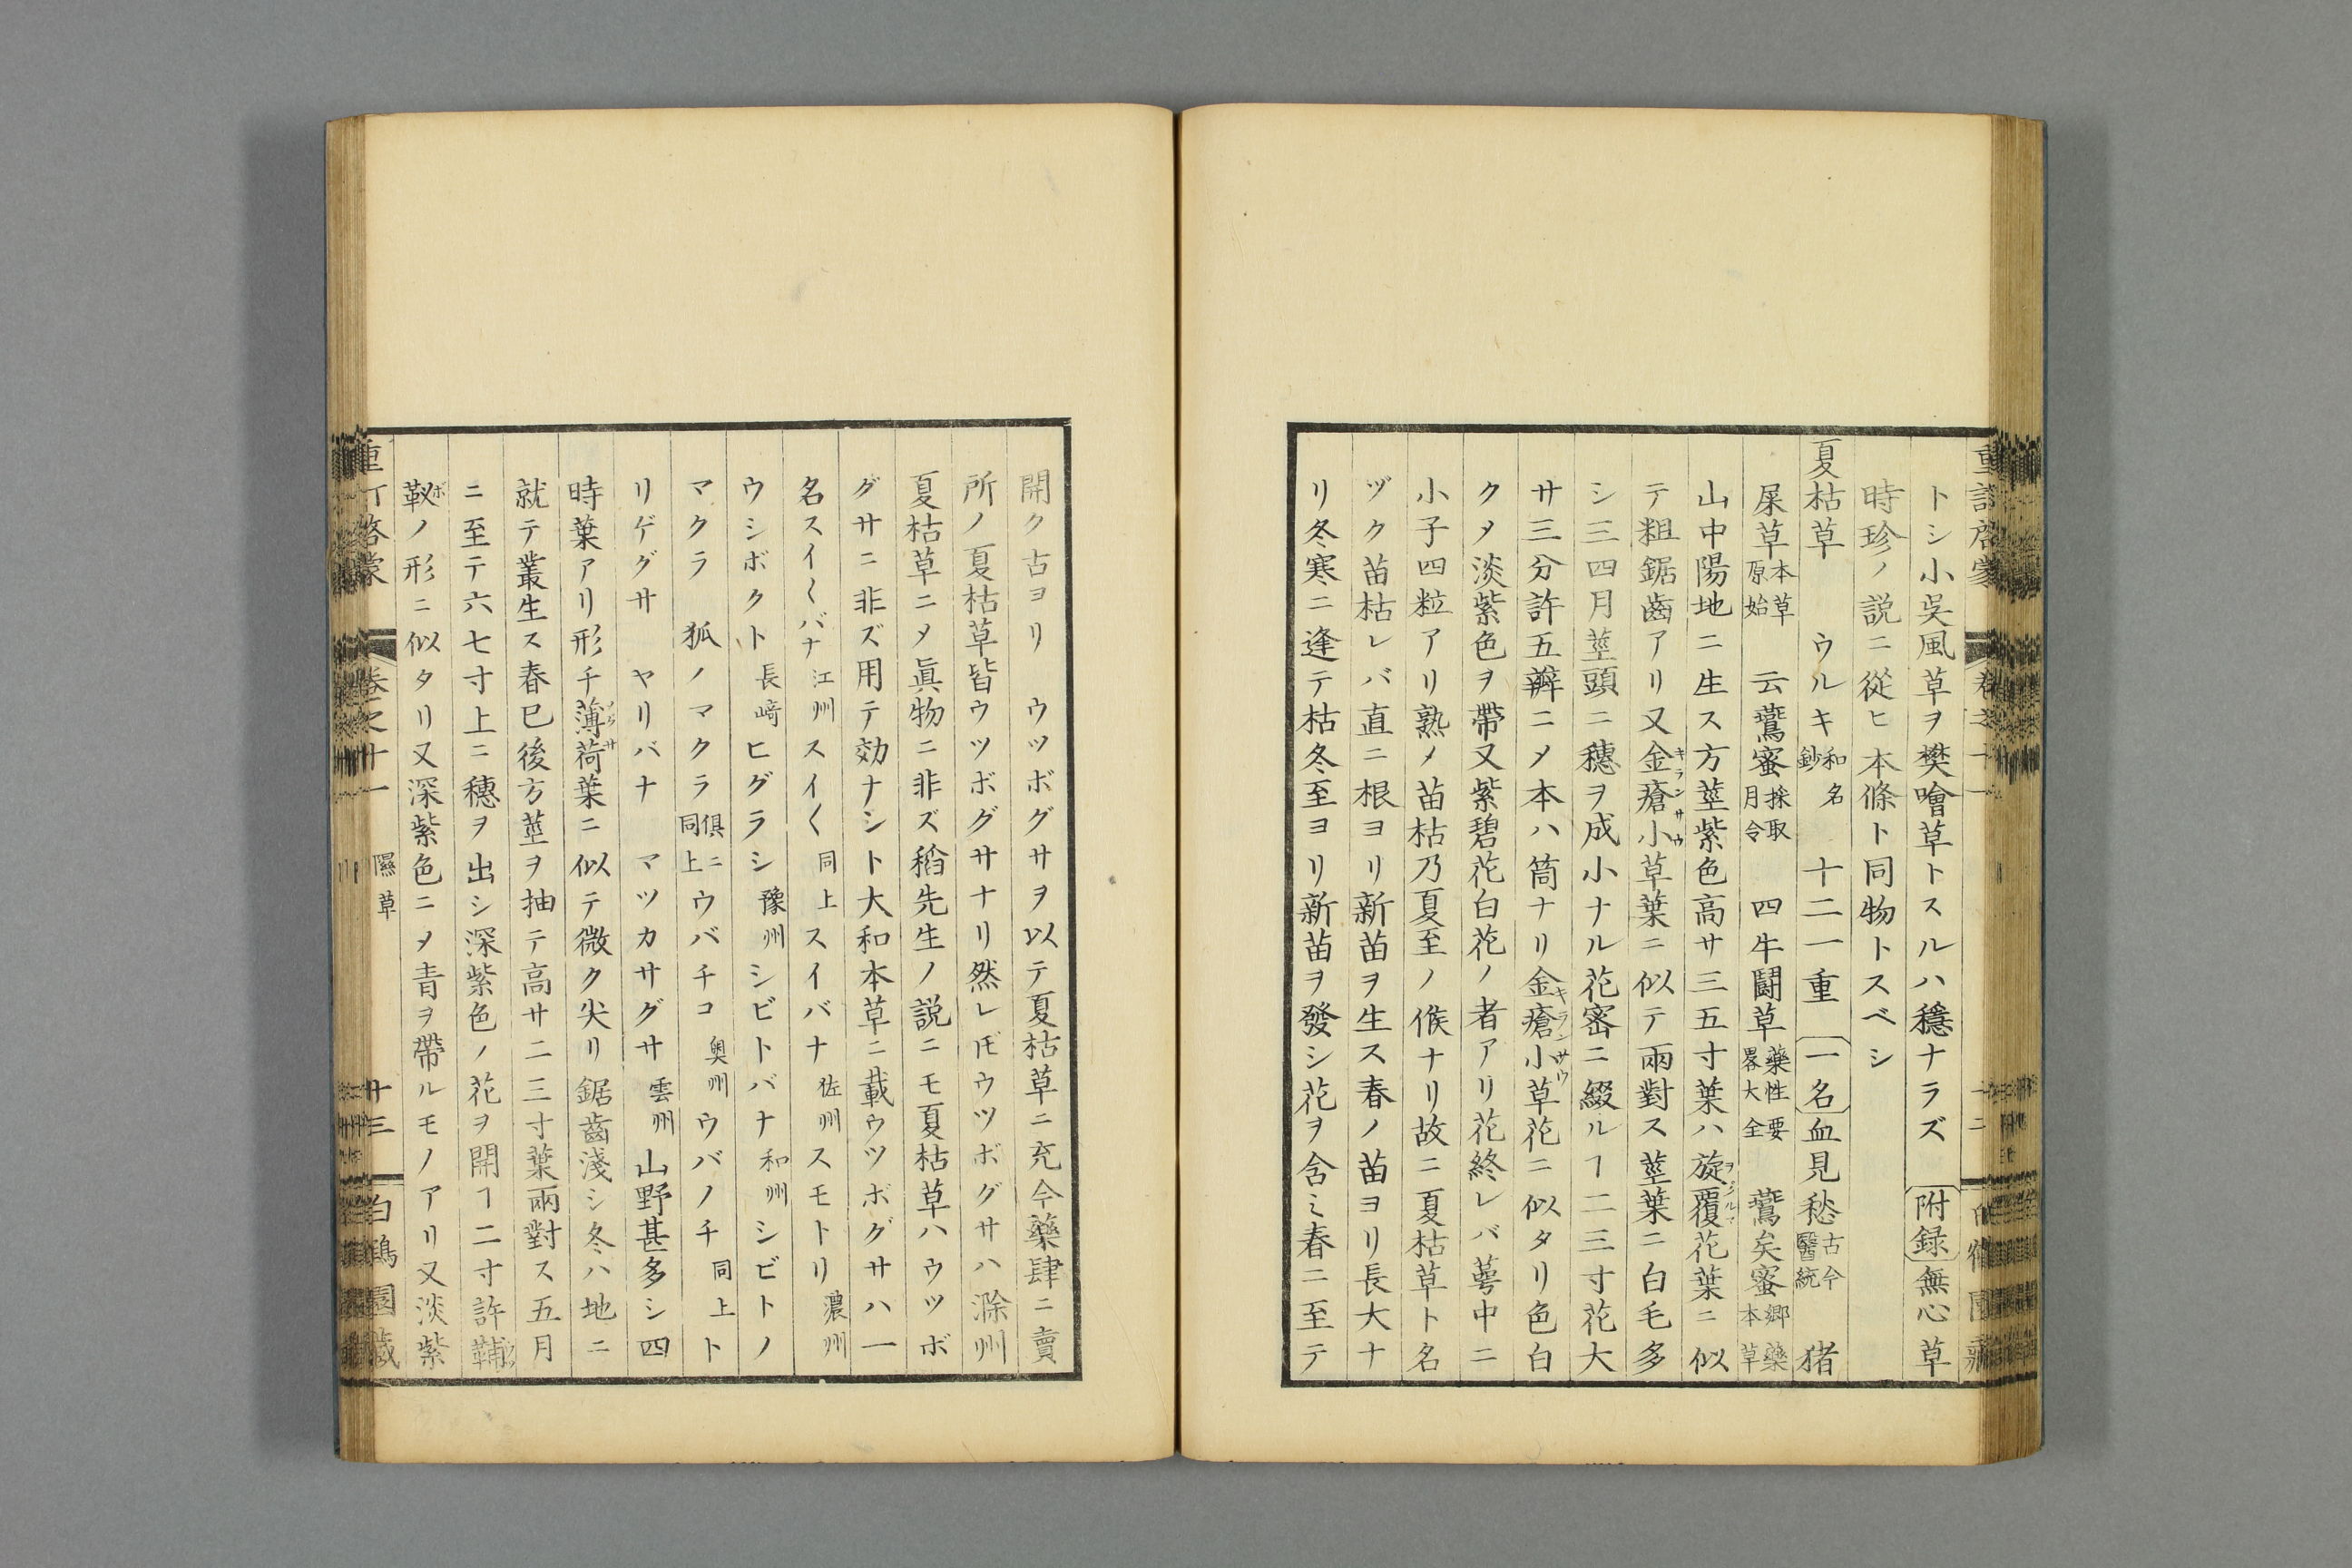 トシ小呉風草ヲ樊噲草トスルハ穩ナラズ 附録 無心草
時珍ノ説ニ從ヒ本條ト同物トスベシ
夏枯草 ウルキ 和名鈔 十二一重 一名 血見愁 古今醫統 猪
屎草 本草原始 云鷟蜜 採取月令 四牛鬪草 藥性要畧大全 鷟矣蜜 郷藥本草
山中陽地ニ生ス方莖紫色高サ三五寸葉ハ旋覆花葉ニ似
テ粗鋸齒アリ又金瘡小草葉ニ似テ兩對ス莖葉ニ白毛多
シ三四月莖頭ニ穗ヲ成小ナル花密ニ綴ルヿ二三寸花大
サ三分許五瓣ニメ本ハ筒ナリ金瘡小草花ニ似タリ色白
クメ淡紫色ヲ帶又紫碧花白花ノ者アリ花終レバ萼中ニ
小子四粒アリ熟メ苗枯乃夏至ノ候ナリ故ニ夏枯草ト名
ヅク苗枯レバ直ニ根ヨリ新苗ヲ生ス春ノ苗ヨリ長大ナ
リ冬寒ニ逢テ枯冬至ヨリ新苗ヲ發シ花ヲ含ミ春ニ至テ
開ク古ヨリ ウツボグサヲ以テ夏枯草ニ充今藥肆ニ賣
所ノ夏枯草皆ウツボグサナリ然レ𪜈ウツボグサハ滁州
夏枯草ニメ眞物ニ非ズ稻先生ノ説ニモ夏枯草ハウツボ
グサニ非ズ用テ効ナシト大和本草ニ載ウツボグサハ一
名スイ〱バナ 江州 スイ〱 同上 スイバナ 佐州 スモトリ 濃州
ウシボクト 長﨑 ヒグラシ 豫州 シビトバナ 和州 シビトノ
マクラ 狐ノマクラ 倶ニ同上 ウバチコ 奥州 ウバノチ 同上 ト
リゲグサ ヤリバナ マツカサグサ 雲州 山野甚多シ四
時葉アリ形チ薄荷葉ニ似テ微ク尖リ鋸齒淺シ冬ハ地ニ
就テ叢生ス春巳後方莖ヲ抽テ高サ二三寸葉兩對ス五月
ニ至テ六七寸上ニ穗ヲ出シ深紫色ノ花ヲ開ヿ二寸許鞴
靫ノ形ニ似タリ又深紫色ニメ青ヲ帶ルモノアリ又淡紫
卷之十一 隰草 十三